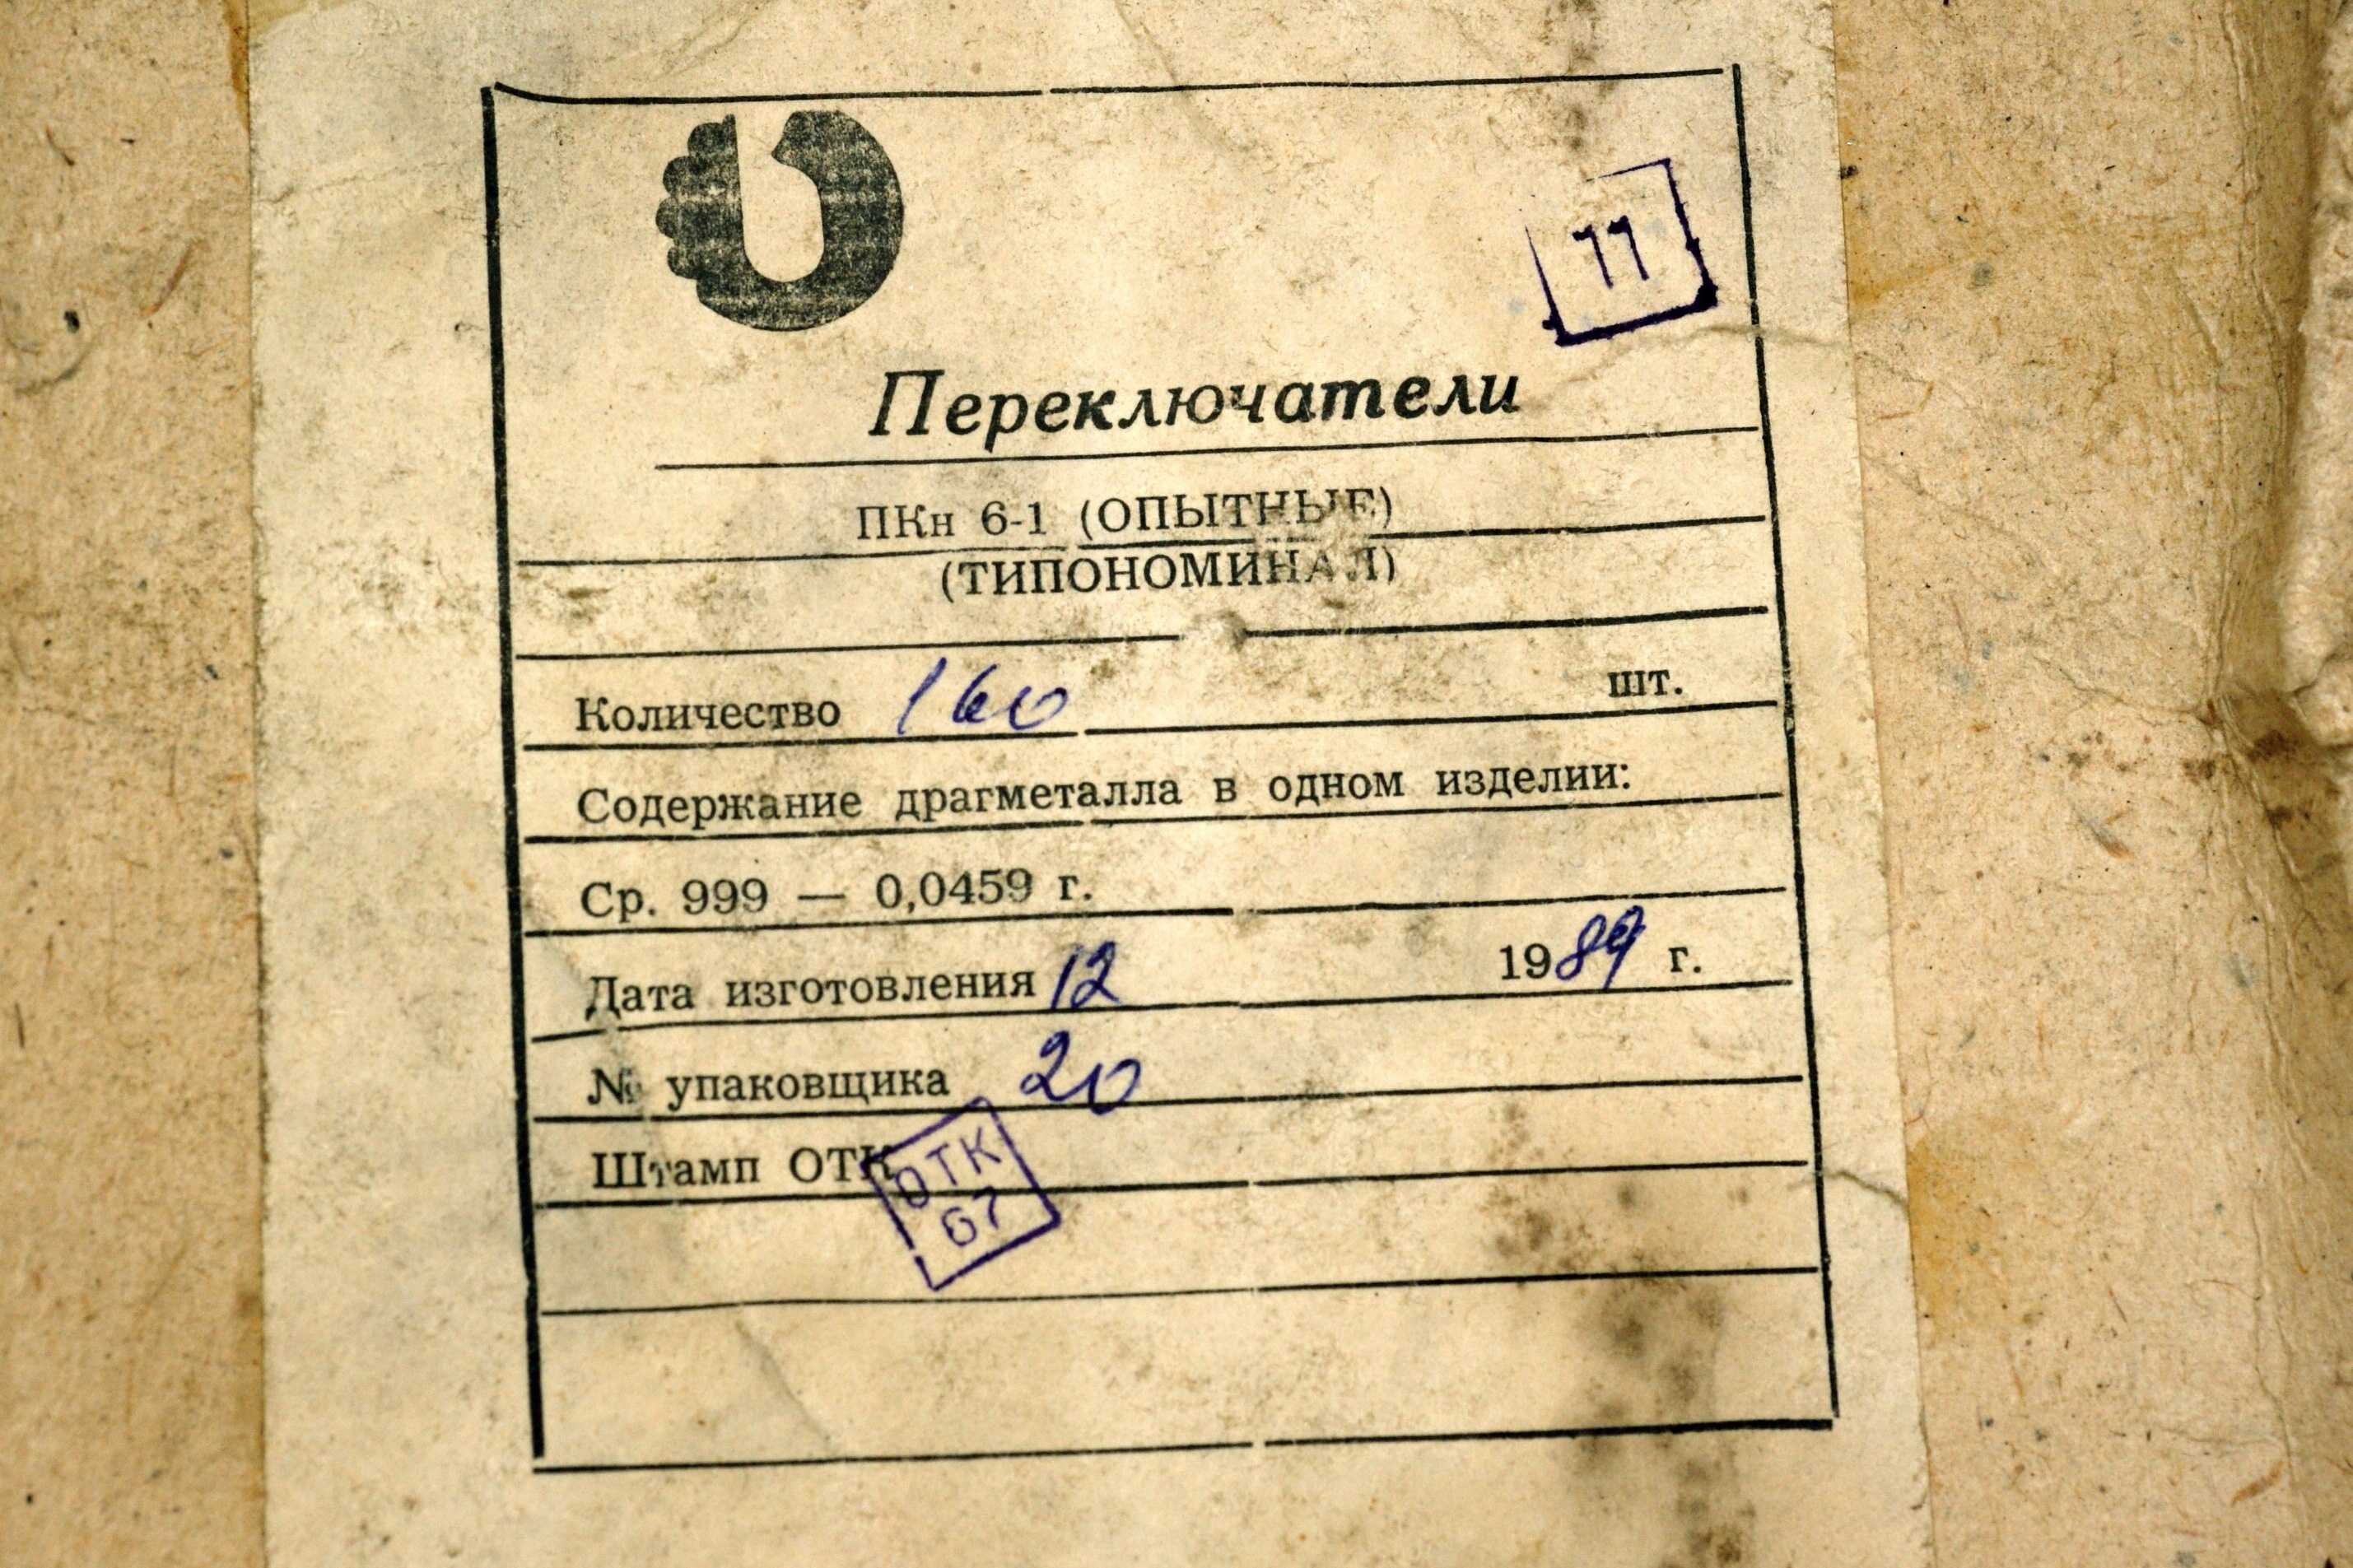 11
Переключатели
ПКн 6-1 (ОПЫТНЫЕ)
(ТИПОНОМИНАЛ)
Количество 160 шт.
Содержание драгметалла в одном изделии:
Ср. 999 — 0,0459 г.
Дата изготовления 12 1989 г.
№ упаковщика 20
Штамп ОТК
ОТК
67